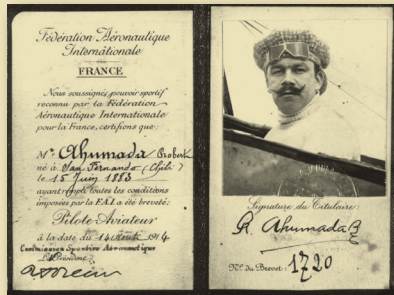 Fédération Aéronautique
Internationale
FRANCE
Nous soussignés, pouvoir sportif
reconnu par la Fédération
Aéronautique Internationale
pour la France, certifions que:
Mr. Ahumada Robert
né à San Fernando (Chili)
le 15 Juin 1883
ayant rempli toutes les conditions
imposées par la F.A.I. a été breveté:
Pilote-Aviateur
à la date du 14 Août 1914
Commission Sportive Aéronautique
Le Président:
Signature du Titulaire:
R. Ahumada B
No. du Brevet: 1720